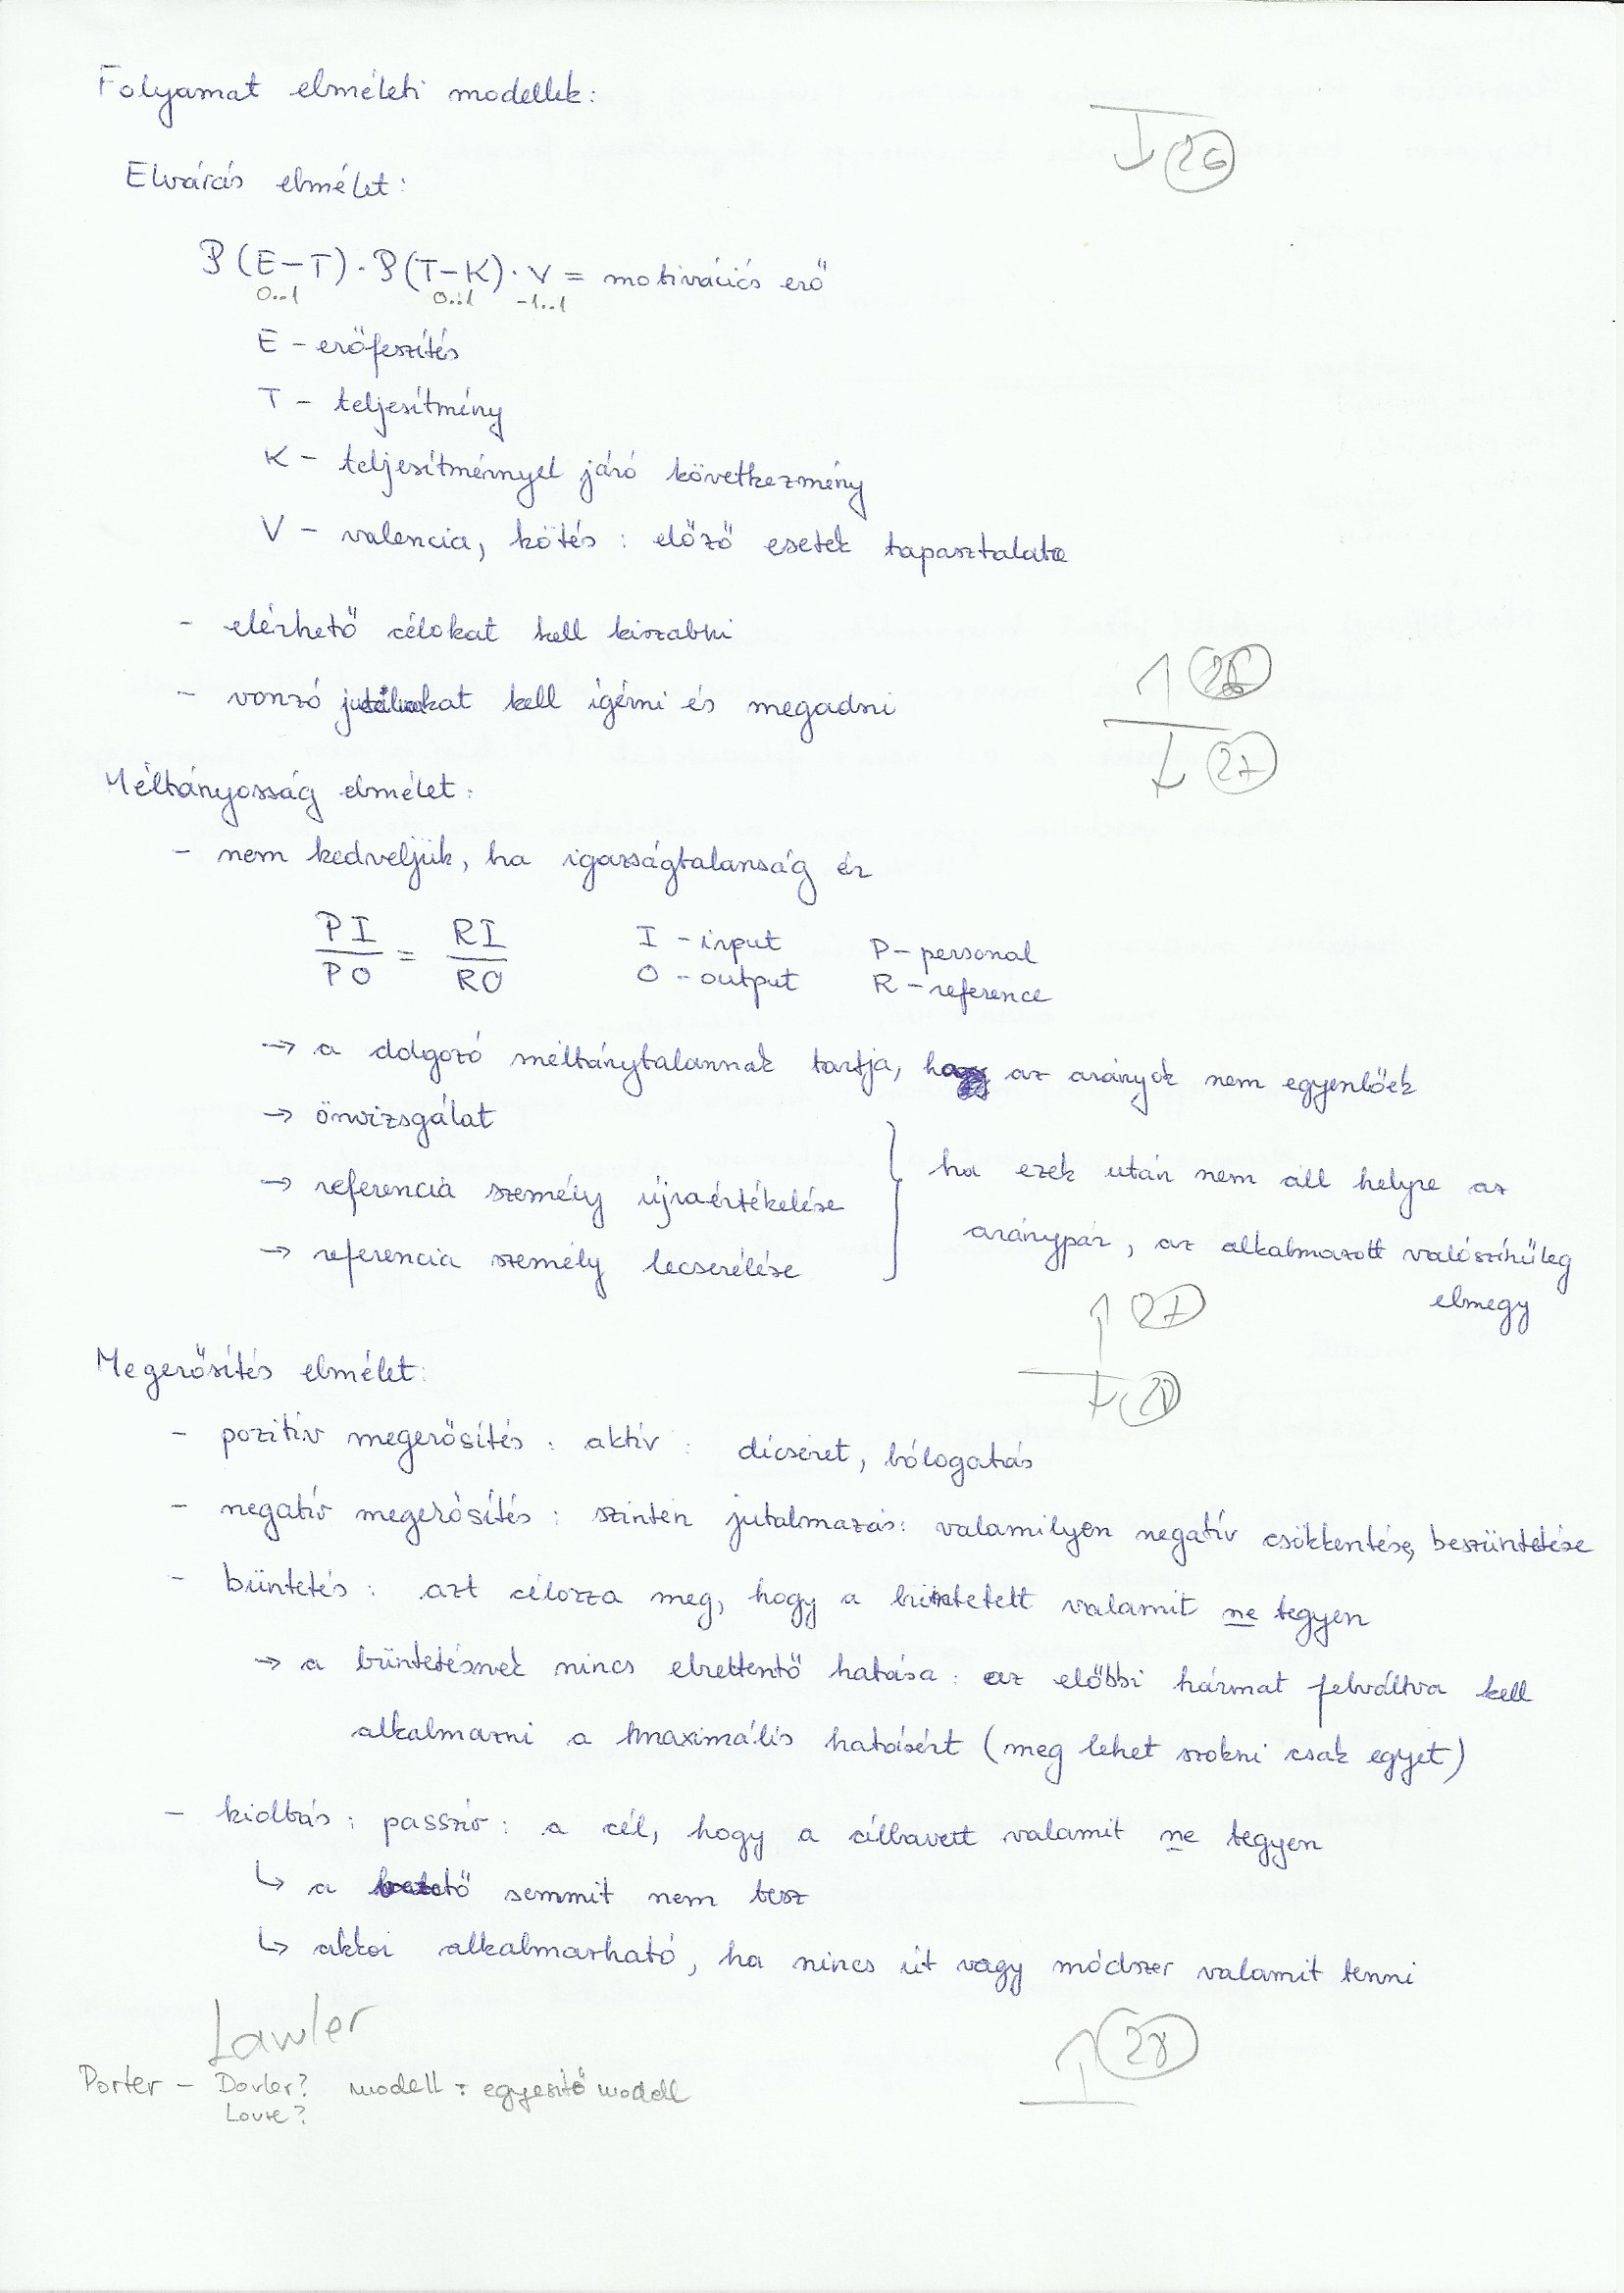 Folyamat elméleti modellek:
26
Elvárás elmélet:
P(E-T) · P(T-K) · V = motivációs erő
0..1 0..1 -1..1
E - erőfeszítés
T - teljesítmény
K - teljesítménnyel járó következmény
V - valencia, kötés : előző esetek tapasztalata
- elérhető célokat kell kiszabni
26
- vonzó kell ígérni és megadni
27
Méltányosság elmélet:
- nem kedveljük, ha igazságtalanság ér
PI/PO = RI/RO
I - input P - personal
O - output R - reference
→ a dolgozó méltánytalannak tartja, az arányok nem egyenlőek
→ önvizsgálat
→ referencia személy újraértékelése
→ referencia személy lecserélése
ha ezek után nem áll helyre az
aránypár, az alkalmazott valószínűleg
elmegy
27
Megerősítés elmélet:
28
- pozitív megerősítés : aktív : dícséret, bólogatás
- negatív megerősítés : szintén jutalmazás: valamilyen negatív csökkentése, beszüntetése
- büntetés : azt célozza meg, hogy a büntetett valamit ne tegyen
→ a büntetésnek nincs elrettentő hatása : az előbbi hármat felváltva kell
alkalmazni a maximális hatásért (meg lehet szokni csak egyet)
- kioltás : passzív : a cél, hogy a célbavett valamit ne tegyen
↳ a semmit nem tesz
↳ akkor alkalmazható, ha nincs út vagy módszer valamit tenni
Lawler
28
Porter - Dovler? modell : egyesítő modell
Loure?